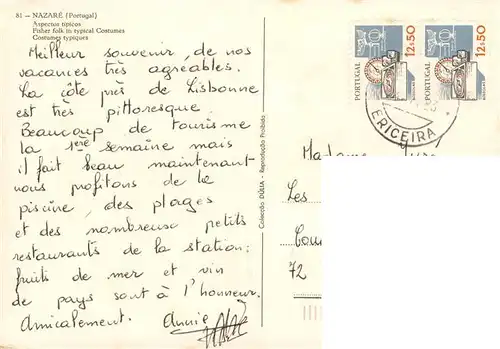 81 – NAZARÉ (Portugal)
Aspectos típicos
Fisher folk in typical Costumes
Costumes typiques
Meilleur souvenir de nos
vacances très agréables.
La côte près de Lisbonne
est très pittoresque.
Beaucoup de tourisme
la 1ère semaine mais
il fait beau maintenant
nous profitons de la
piscine, des plages
et des nombreuse petits
restaurants de la station:
fruits de mer et vin
de pays sont à l'honneur.
Amicalement. Annie
Colecção DÚLIA - Reprodução Proibida
PORTUGAL 12$50
PORTUGAL 12$50
ERICEIRA
Madame
Les
Cou
72